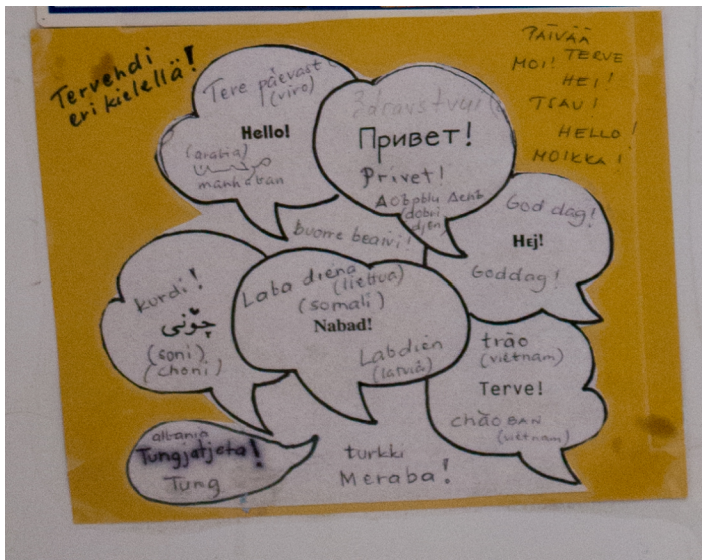 Tervehdi
eri kielellä!
PÄIVÄÄ
TERVE
MOI!
HEI!
TSAU!
HELLO!
MOIKKA!
Tere päevast
(viro)
Hello!
(arabia)
manhaban
Zdravstvui
Привет!
Privet!
(dobri
djen)
buorre beaivi!
God dag!
Hej!
Goddag!
kurdi!
چۆنی
(soni)
(choni)
Laba diena
(liettua)
(somali)
Nabad!
Labdien
(latvia)
trào
(vietnam)
Terve!
chào BAN
(vietnam)
albania
Tungjatjeta!
Tung
turkki
Meraba!